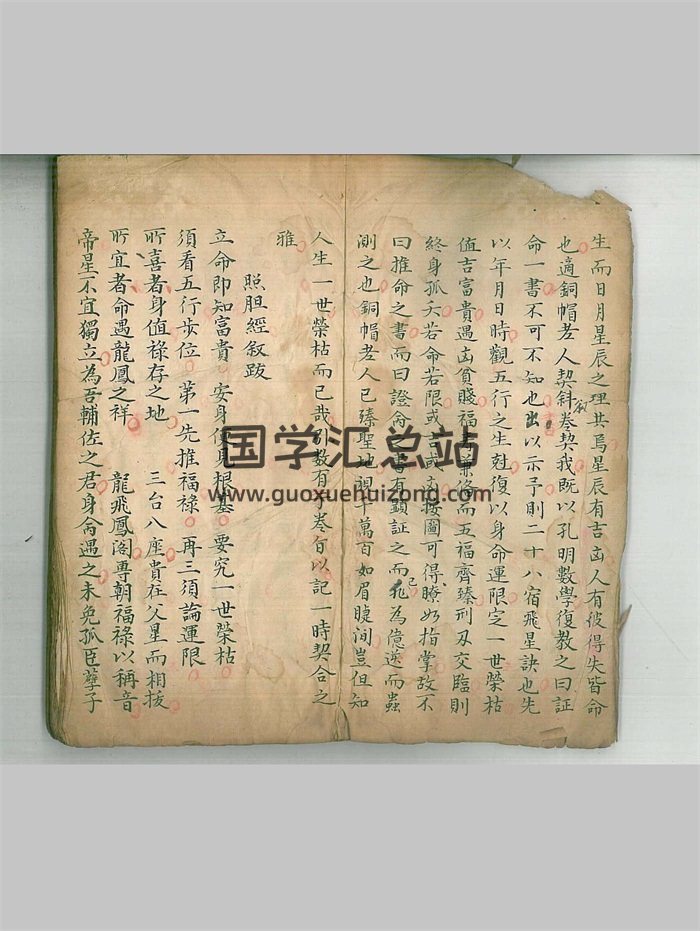 生而日月星辰之理其焉星辰有吉凶人有彼得失皆命
也適銅帽老人契斜叅契我既以孔明數學復教之曰証
命一書不可不知也出以示予則二十八宿飛星訣也先
以年月日時觀五行之生尅復以身命運限定一世榮枯
值吉富貴遇凶貧賤福壽兼俻而五福齊臻刑刃交臨則
終身孤夭若命若限或吉或凶按圖可得瞭如指掌故不
曰推命之書而曰證命之書有顯証之而已非為億逆而蟲
測之也銅帽老人已臻聖地視千萬百如眉睫间豈但知
人生一世榮枯而已哉引數有字卷百以記一時契合之
雅
照胆經叙跋
立命即知富貴 安身便見根基 要究一世榮枯
須看五行步位 第一先推福禄 再三須論運限
所喜者身值禄存之地 三台八座貴在父星而相扳
所宜者命遇龍鳳之祥 龍飛鳳阁専朝福禄以稱音
帝星不宜獨立為吾輔佐之君身命遇之未免孤臣孽子
国学汇总站
www.guoxuehuizong.com